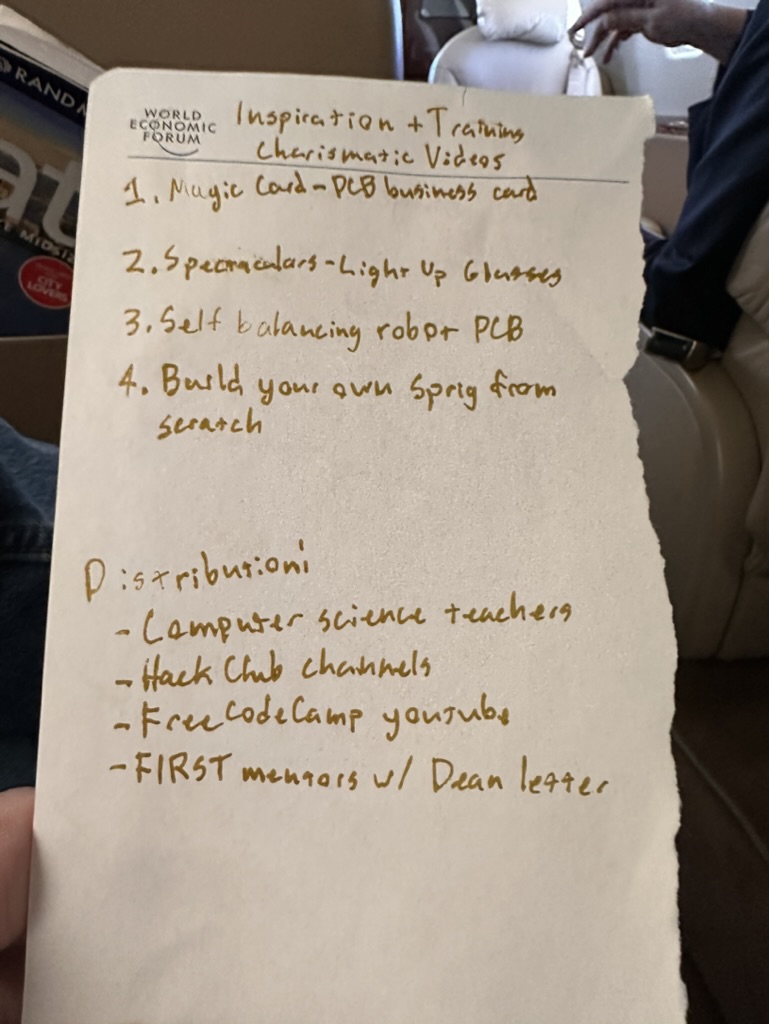 RAND M
at
MIDSIZ
CITY
LOVERS
WORLD
ECONOMIC
FORUM
Inspiration + Training
Charismatic Videos
1. Magic Card - PCB business card
2. Spectaculars - Light Up Glasses
3. Self balancing robot PCB
4. Build your own Sprig from
scratch
Distribution:
- Computer science teachers
- Hack Club channels
- FreeCodeCamp youtube
- FIRST mentors w/ Dean letter